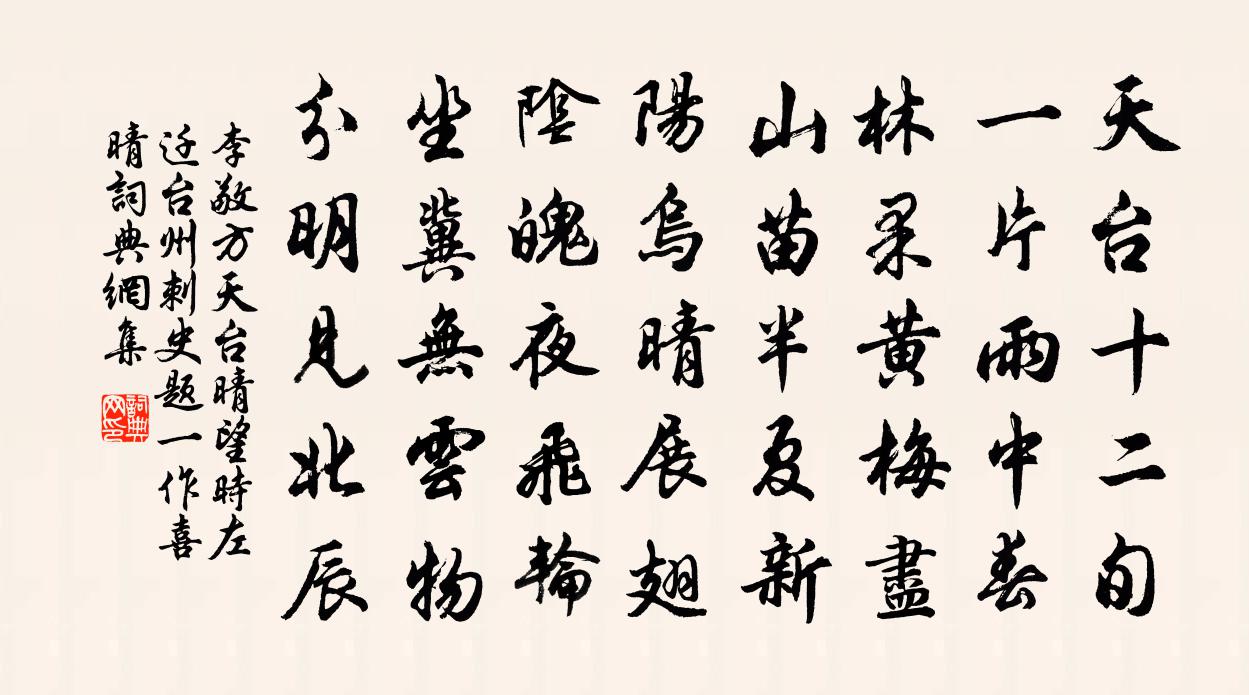 天台十二旬
一片雨中春
林果黄梅盡
山苗半夏新
陽烏晴展翅
陰魄夜飛輪
坐冀無雲物
分明見北辰
李敬方天台晴望時左
迁台州刺史題一作喜
晴詞典網集
詞典
网印